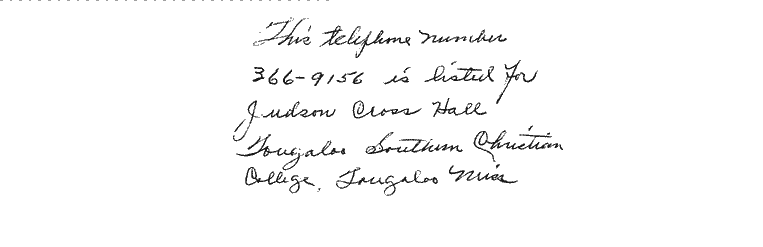 This telephone number
366-9156 is listed for
Judson Cross Hall
Tougaloo Southern Christian
College, Tougaloo Miss